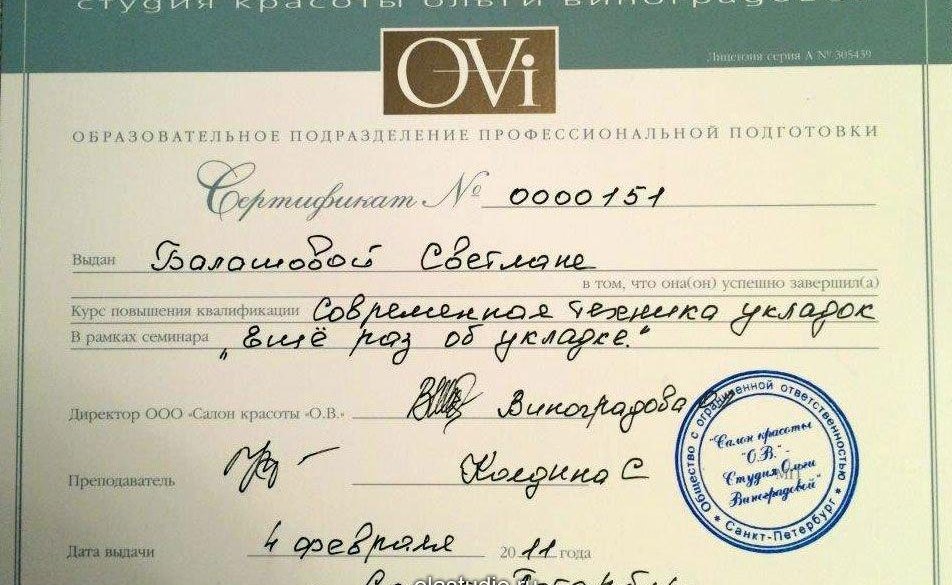 студия красоты ольги виноградовой
Лицензия серия А № 305439
OVi
ОБРАЗОВАТЕЛЬНОЕ ПОДРАЗДЕЛЕНИЕ ПРОФЕССИОНАЛЬНОЙ ПОДГОТОВКИ
Сертификат № 0000151
Выдан Балашовой Светлане
в том, что она(он) успешно завершил(а)
Курс повышения квалификации Современная техника укладок
В рамках семинара „Ещё раз об укладке."
Директор ООО «Салон красоты «О.В.» Виноградова
Общество с ограниченной ответственностью
"Салон красоты
"О.В." -
Студия Ольги
Виноградовой"
МП
* Санкт-Петербург *
Преподаватель Колдина С
Дата выдачи 4 февраля 2011 года
olastudio.ru